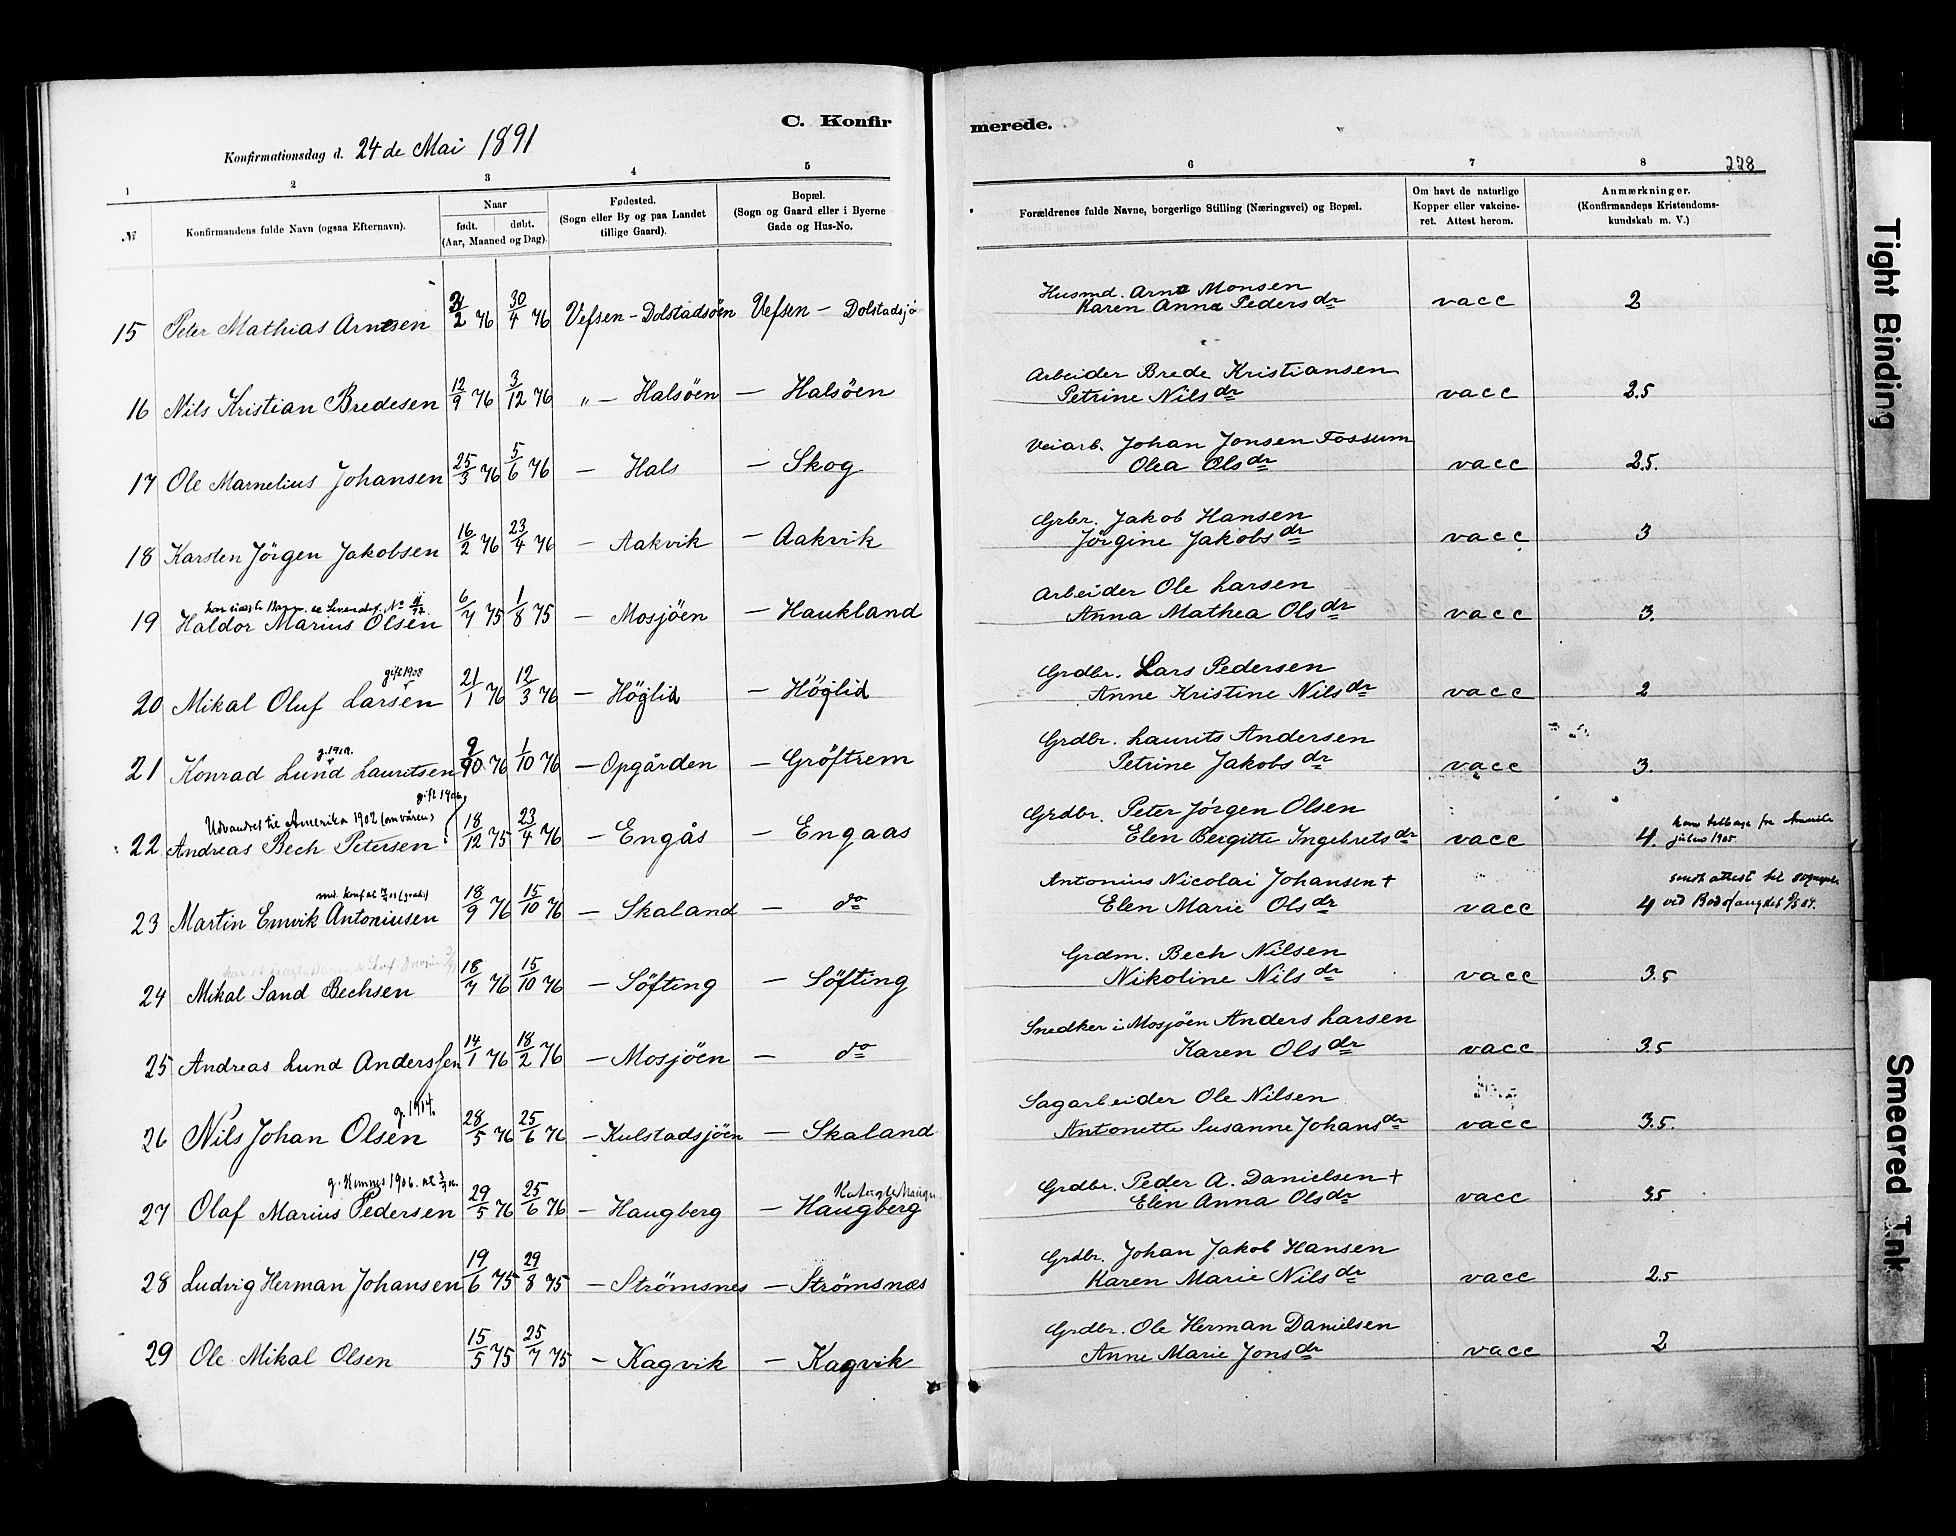 C. Konfirmerede.
Konfirmationsdag d. 24de Mai 1891
228
1 2 3 4 5 6 7 8
№
Konfirmandens fulde Navn (ogsaa Efternavn).
Naar
født. døbt.
(Aar, Maaned og Dag).
Fødested.
(Sogn eller By og paa Landet
tillige Gaard).
Bopæl.
(Sogn og Gaard eller i Byerne
Gade og Hus-No.
Forældrenes fulde Navne, borgerlige Stilling (Næringsvei) og Bopæl.
Om havt de naturlige
Kopper eller vakcine-
ret. Attest herom.
Anmærkninger.
(Konfirmandens Kristendoms-
kundskab m. V.)
Husmd. Arne Monsen
15 Peter Mathias Arnesen 2/2 76 30/4 76 Vefsen - Dolstadsöen Vefsen - Dolstadsjö Karen Anna Pedersdr vacc 2
Arbeider Brede Kristiansen
16 Nils Kristian Bredesen 12/9 76 3/12 76 " - Halsöen - Halsöen Petrine Nilsdr vacc 2.5
Veiarb. Johan Jonsen Fossum
17 Ole Marnelius Johansen 25/3 76 5/6 76 - Hals - Skog Olea Olsdr vacc 2.5.
Grbr. Jakob Hansen
18 Karsten Jörgen Jakobsen 16/2 76 23/4 76 - Aakvik - Aakvik Jörgine Jakobsdr vacc 3
Arbeider Ole Larsen
19 Haldor Marius Olsen 6/7 75 1/8 75 - Mosjöen - Haukland Anna Mathea Olsdr vacc 3.
gift 1908
Grdbr. Lars Pedersen
20 Mikal Oluf Larsen 21/1 76 12/3 76 - Höglid - Höglid Anne Kristine Nilsdr vacc 2
Grdbr. Laurits Andersen
21 Konrad Lund Lauritsen 76 1/10 76 - Opgården - Gröftrem Petrine Jakobsdr vacc 3.
Udvandret til Amerika 1902 (om våren)
Grdbr. Peter Jörgen Olsen
22 Andreas Bech Petersen 18/12 75 23/4 76 - Engås - Engaas Elen Bergitte Ingebretsdr vacc 4. kom tilbage fra Amerika
julen 1905.
Antonius Nicolai Johansen +
sendt attest til
23 Martin Emvik Antoniusen 18/9 76 15/10 76 - Skaland - do Elen Marie Olsdr vacc 4 ved
Grdm. Bech Nilsen
24 Mikal Sand Bechsen 18/7 76 15/10 76 - Söfting - Söfting Nikoline Nilsdr vacc 3.5
Snedker i Mosjöen Anders Larsen
25 Andreas Lund Anderssen 14/1 76 18/2 76 - Mosjöen - do Karen Olsdr vacc 3.5
g. 1914.
Sagarbeider Ole Nilsen
26 Nils Johan Olsen 28/5 76 25/6 76 - Kulstadsjöen - Skaland Antonette Susanne Johansdr vacc 3.5.
g. Hemnes 1906.
Grdbr. Peder A. Danielsen +
27 Olaf Marius Pedersen 29/5 76 25/6 76 - Haugberg - Haugberg Elen Anna Olsdr vacc 3.5
Grdbr. Johan Jakob Hansen
28 Ludvig Herman Johansen 19/6 75 29/8 75 - Strömsnes - Strömsnæs Karen Marie Nilsdr vacc 2.5
Grdbr. Ole Herman Danielsen
29 Ole Mikal Olsen 15/5 75 25/7 75 - Kagvik - Kagvik Anne Marie Jonsdr vacc 2
Tight Binding
Smeared Ink